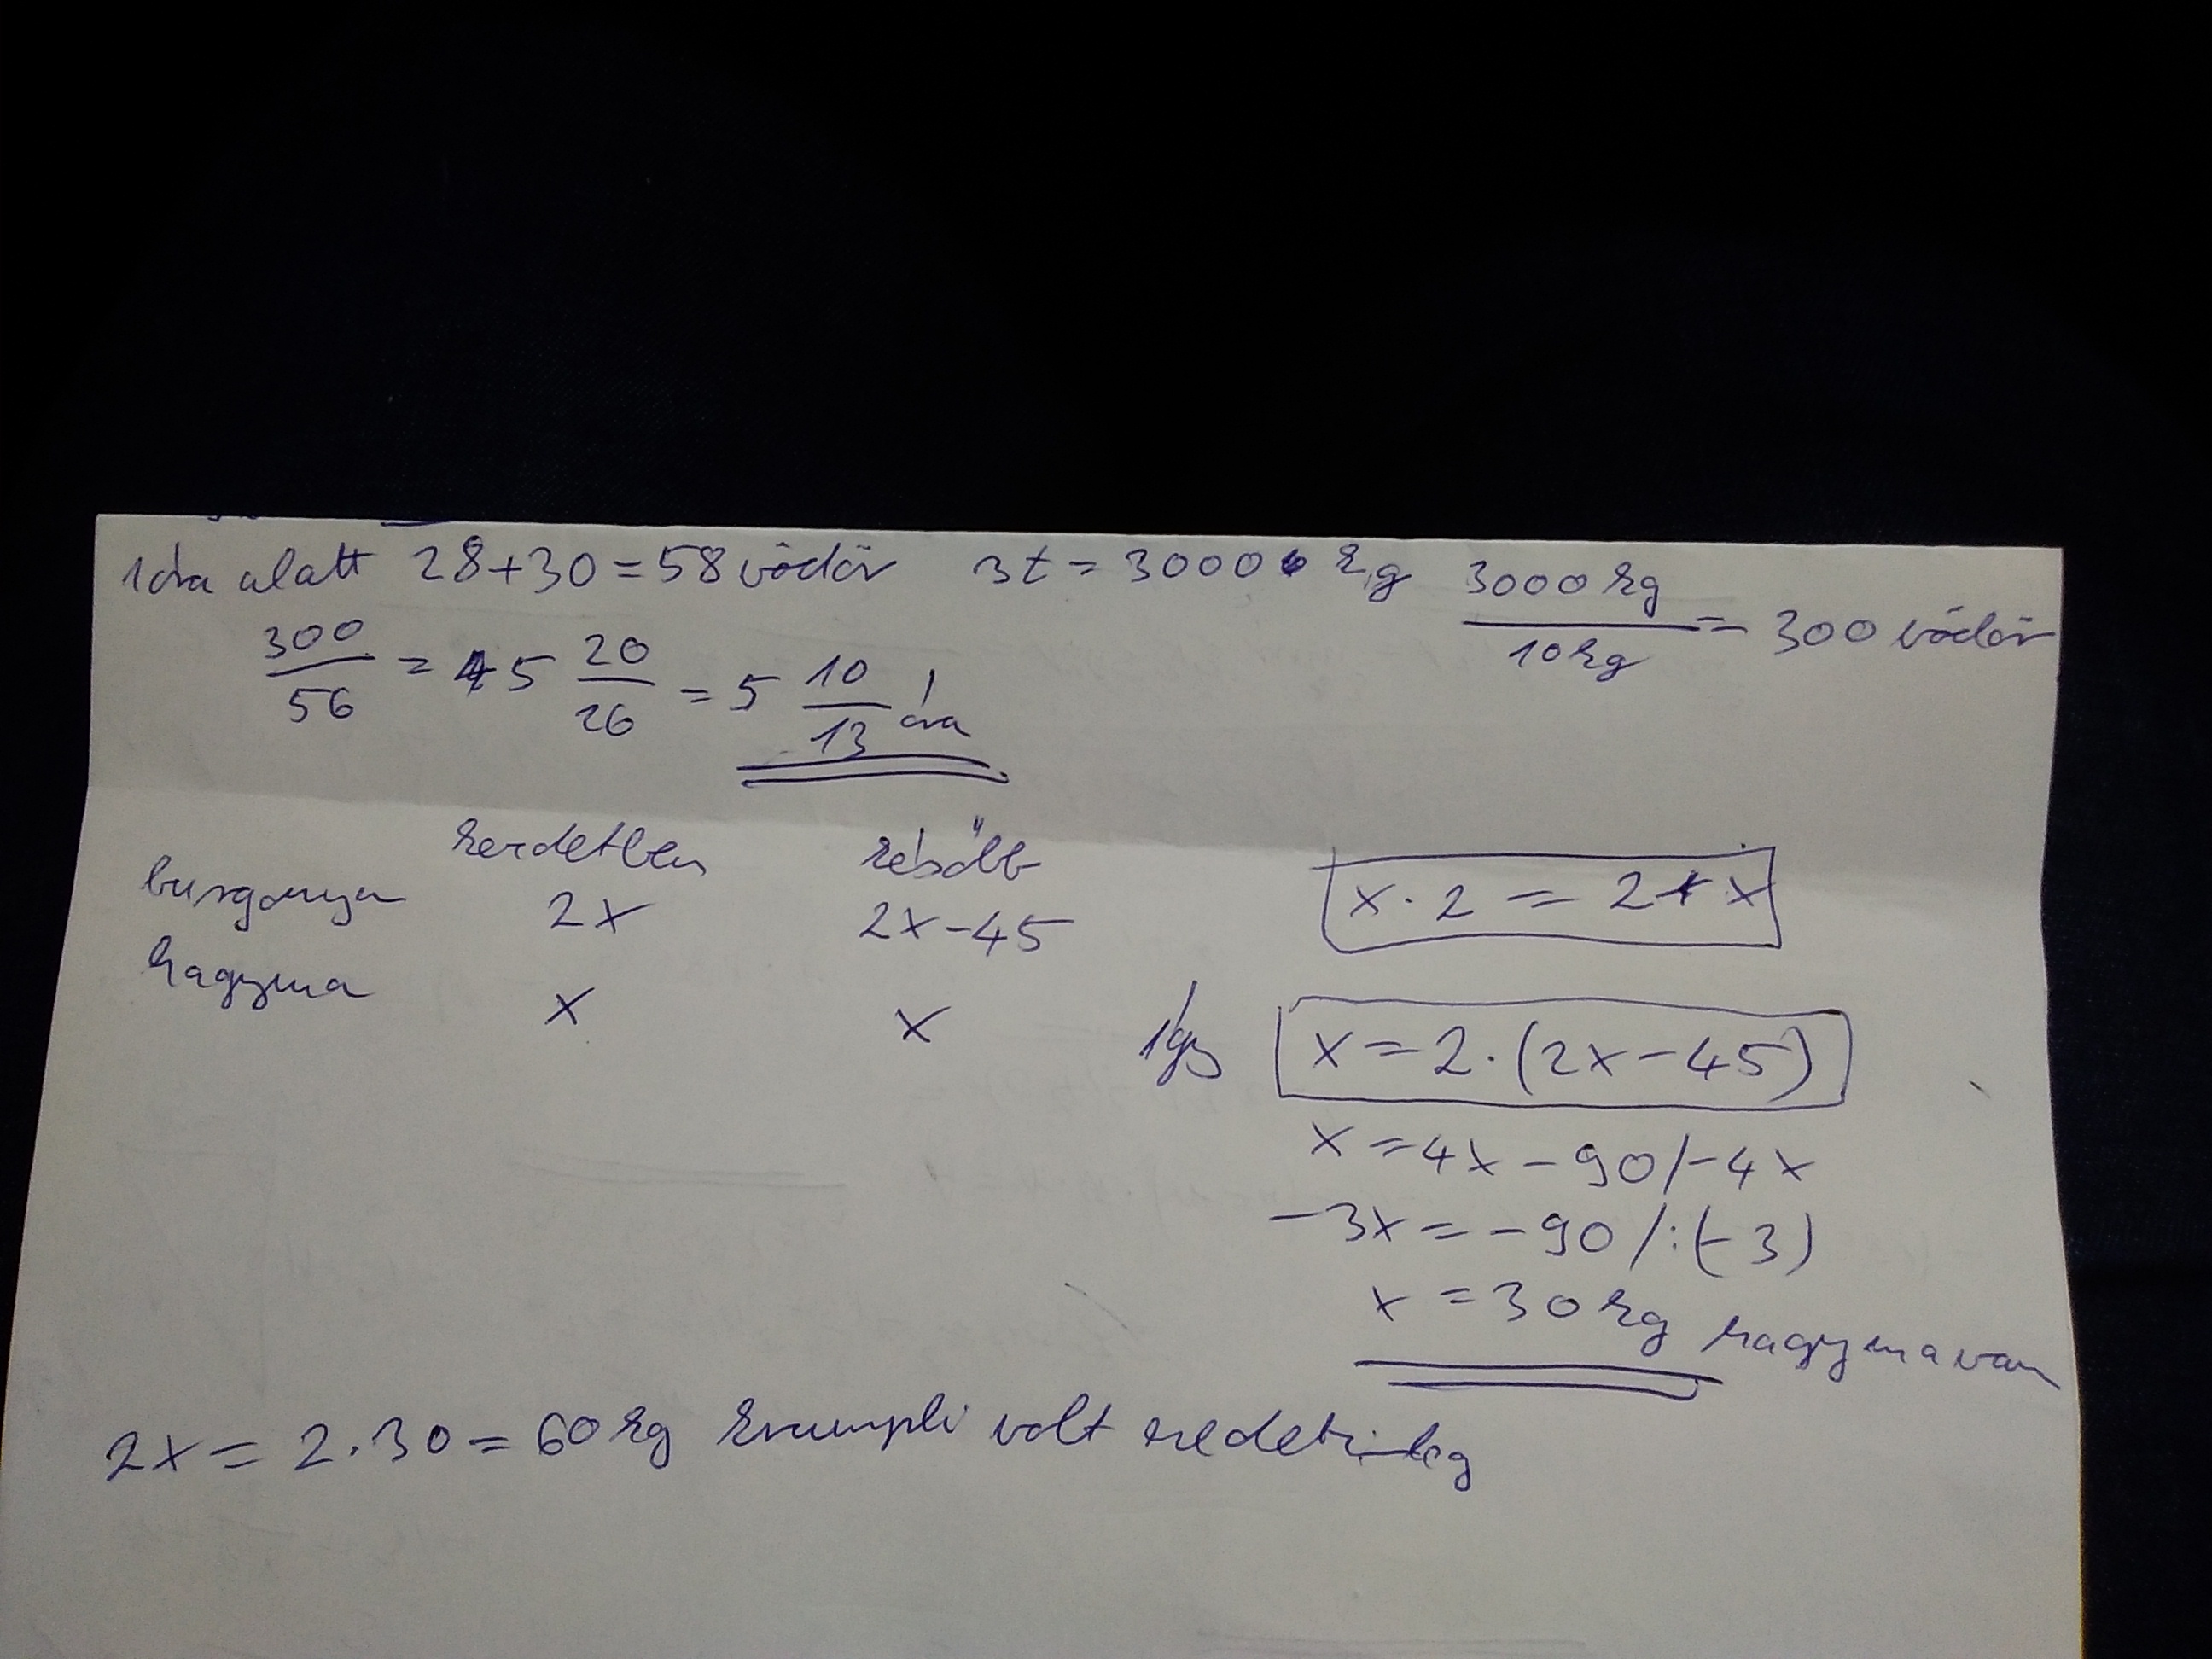 1 óra alatt 28+30=58 vödör 3t = 3000 kg 3000 kg / 10 kg = 300 vödör
300/56 = 5 20/26 = 5 10/13 óra
kezdetben később
burgonya 2x 2x-45 x·2=2x
hagyma x x
így x=2·(2x-45)
x=4x-90/-4x
-3x=-90/:(-3)
x=30kg hagyma van
2x=2·30=60kg krumpli volt eredetileg